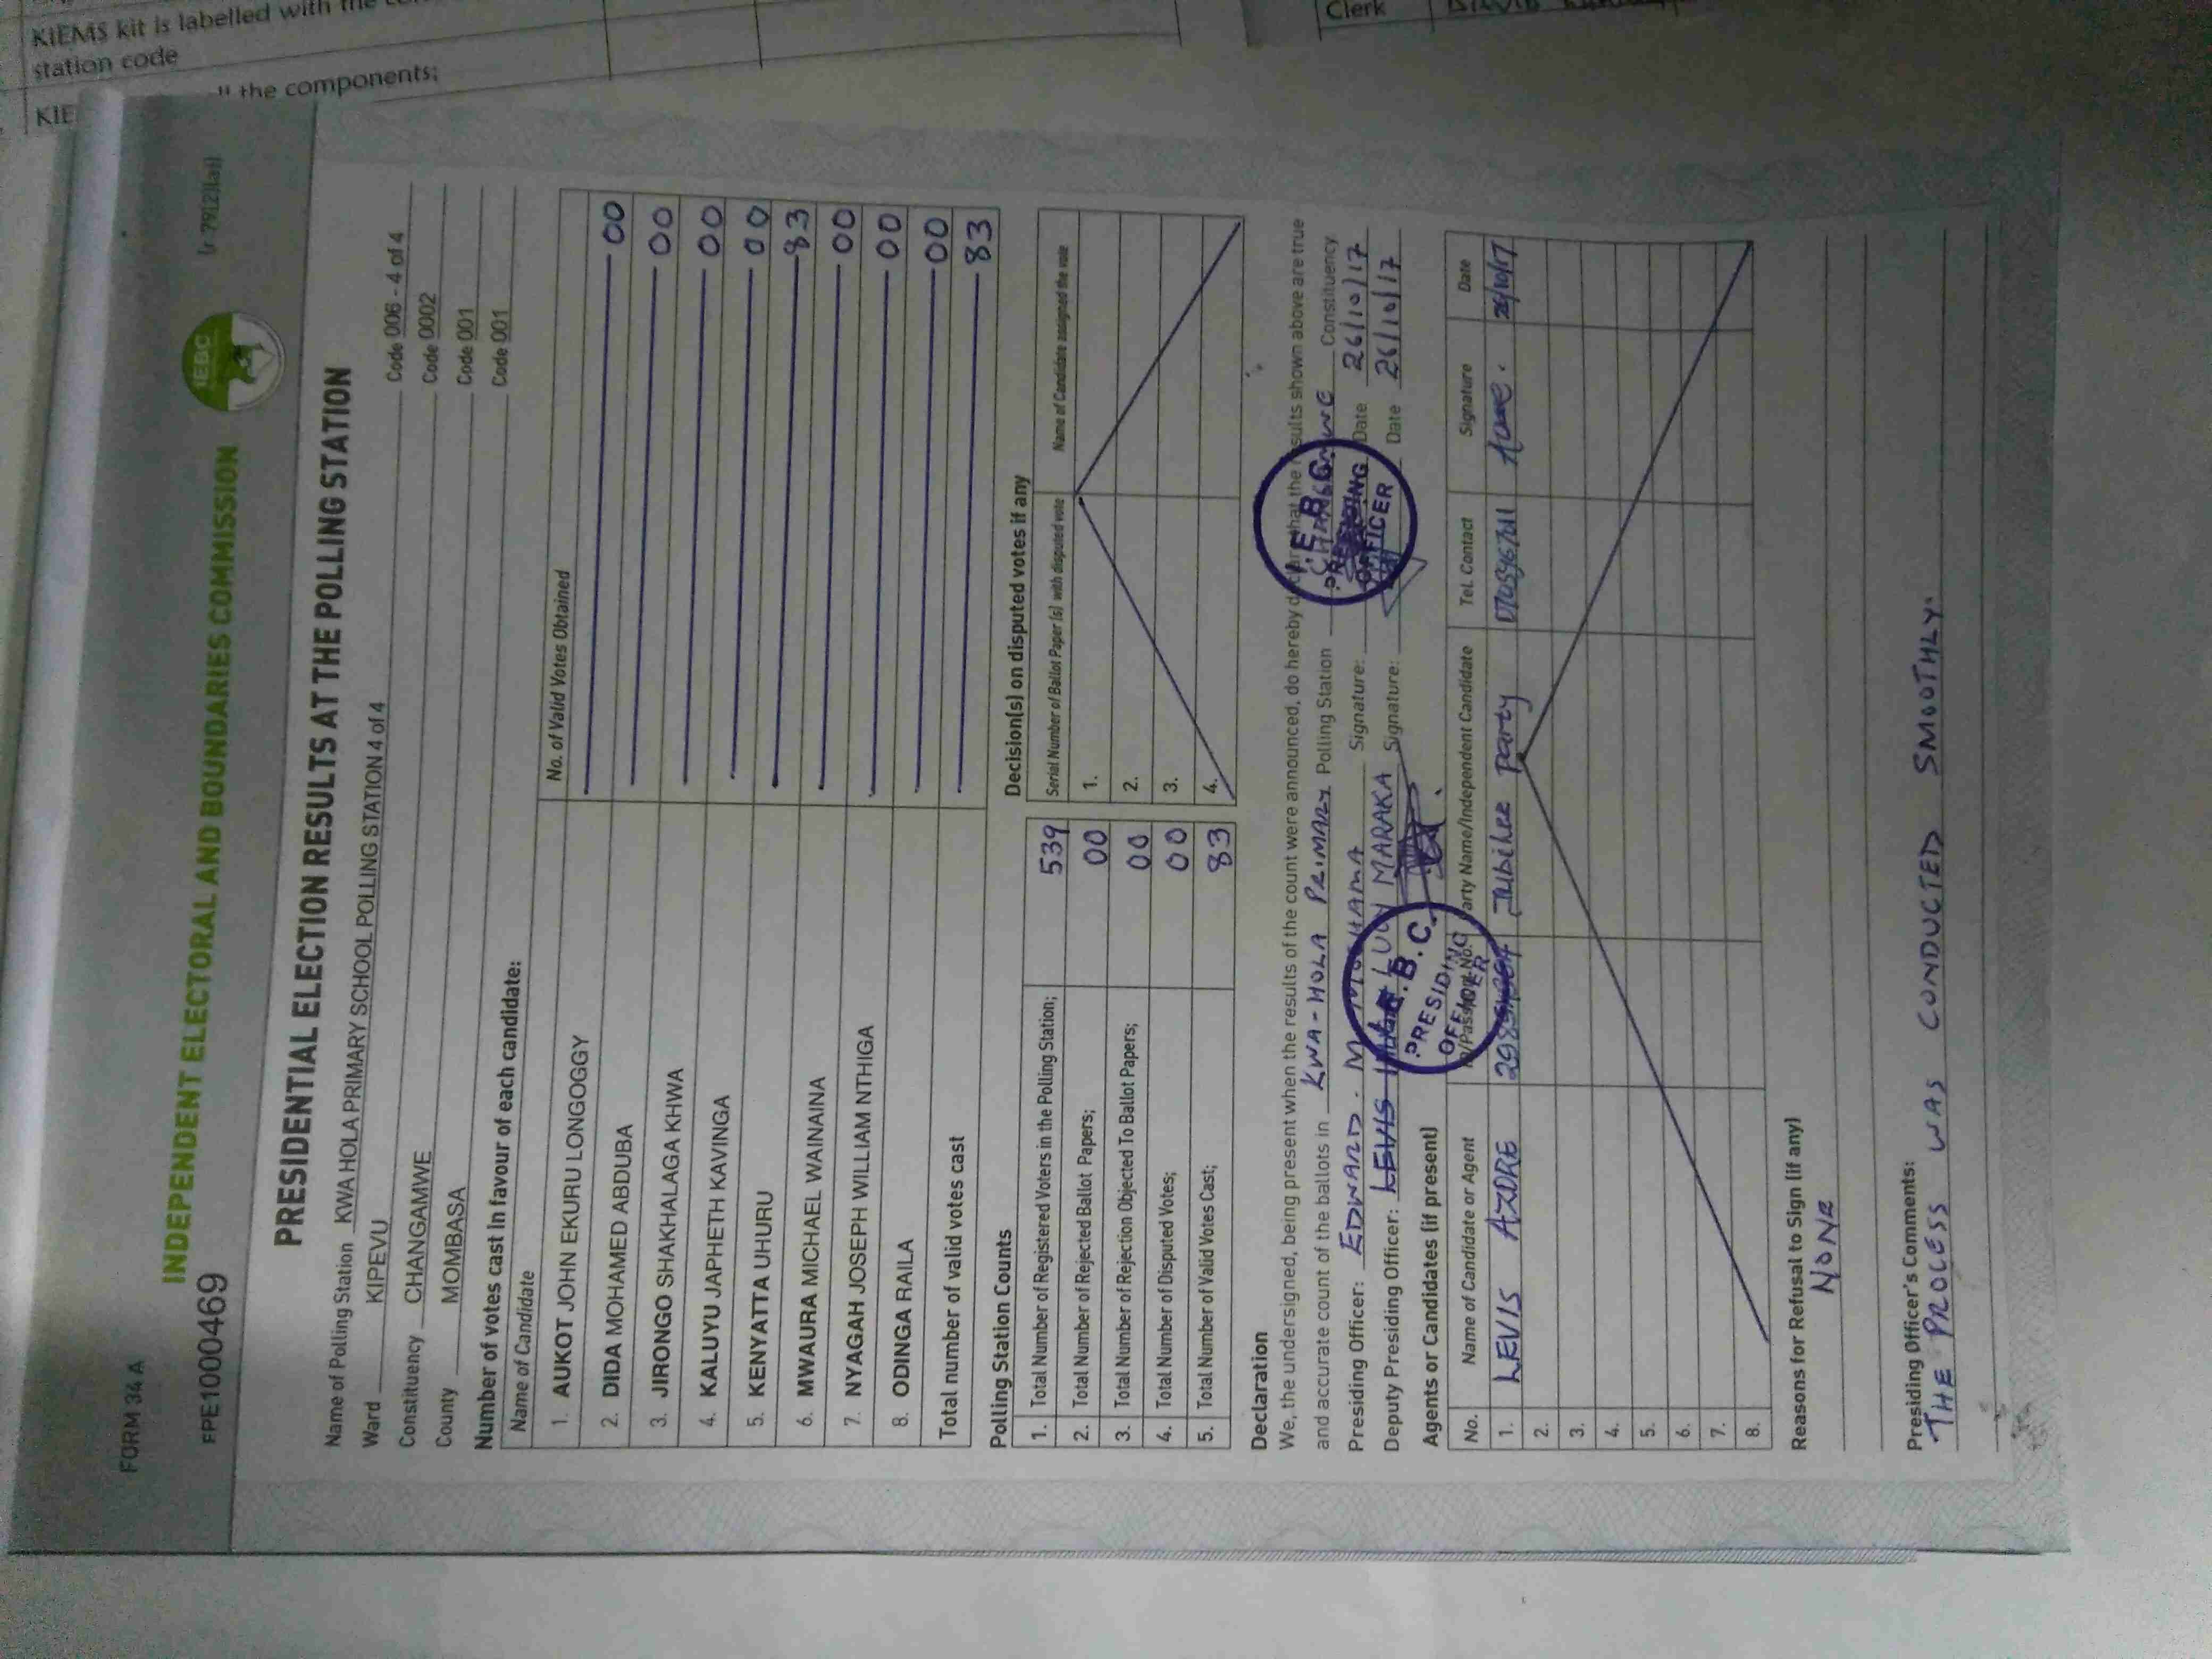 KIEMS kit is labelled with the
station code
the components;
Clerk
FORM 34 A
INDEPENDENT ELECTORAL AND BOUNDARIES COMMISSION
IEBC
(r 79(2)(a))
FPE1000469
PRESIDENTIAL ELECTION RESULTS AT THE POLLING STATION
Name of Polling Station KWA HOLA PRIMARY SCHOOL POLLING STATION 4 of 4 Code 006 - 4 of 4
Ward KIPEVU Code 0002
Constituency CHANGAMWE Code 001
County MOMBASA Code 001
Number of votes cast in favour of each candidate:
Name of Candidate No. of Valid Votes Obtained
1. AUKOT JOHN EKURU LONGOGGY 00
2. DIDA MOHAMED ABDUBA 00
3. JIRONGO SHAKHALAGA KHWA 00
4. KALUYU JAPHETH KAVINGA 00
5. KENYATTA UHURU 83
6. MWAURA MICHAEL WAINAINA 00
7. NYAGAH JOSEPH WILLIAM NTHIGA 00
8. ODINGA RAILA 00
Total number of valid votes cast 83
Polling Station Counts
1. Total Number of Registered Voters in the Polling Station; 539
2. Total Number of Rejected Ballot Papers; 00
3. Total Number of Rejection Objected To Ballot Papers; 00
4. Total Number of Disputed Votes; 00
5. Total Number of Valid Votes Cast; 83
Decision(s) on disputed votes if any
Serial Number of Ballot Paper (s) with disputed vote Name of Candidate assigned the vote
1.
2.
3.
4.
Declaration
We, the undersigned, being present when the results of the count were announced, do hereby declare that the results shown above are true
and accurate count of the ballots in KWA-HOLA PRIMARY Polling Station CHANGAMWE Constituency
Presiding Officer: EDWARD. M. Signature: Date 26/10/17
Deputy Presiding Officer: LUCY MARAKA Signature: Date 26/10/17
I.E.B.C.
PRESIDING
OFFICER
I.E.B.C.
PRESIDING
OFFICER
Agents or Candidates (if present)
No. Name of Candidate or Agent ID/Passport No. Party Name/Independent Candidate Tel. Contact Signature Date
1. LEVIS AZDRE Jubilee party 26/10/17
2.
3.
4.
5.
6.
7.
8.
Reasons for Refusal to Sign (if any)
NONE
Presiding Officer's Comments:
THE PROCESS WAS CONDUCTED SMOOTHLY.